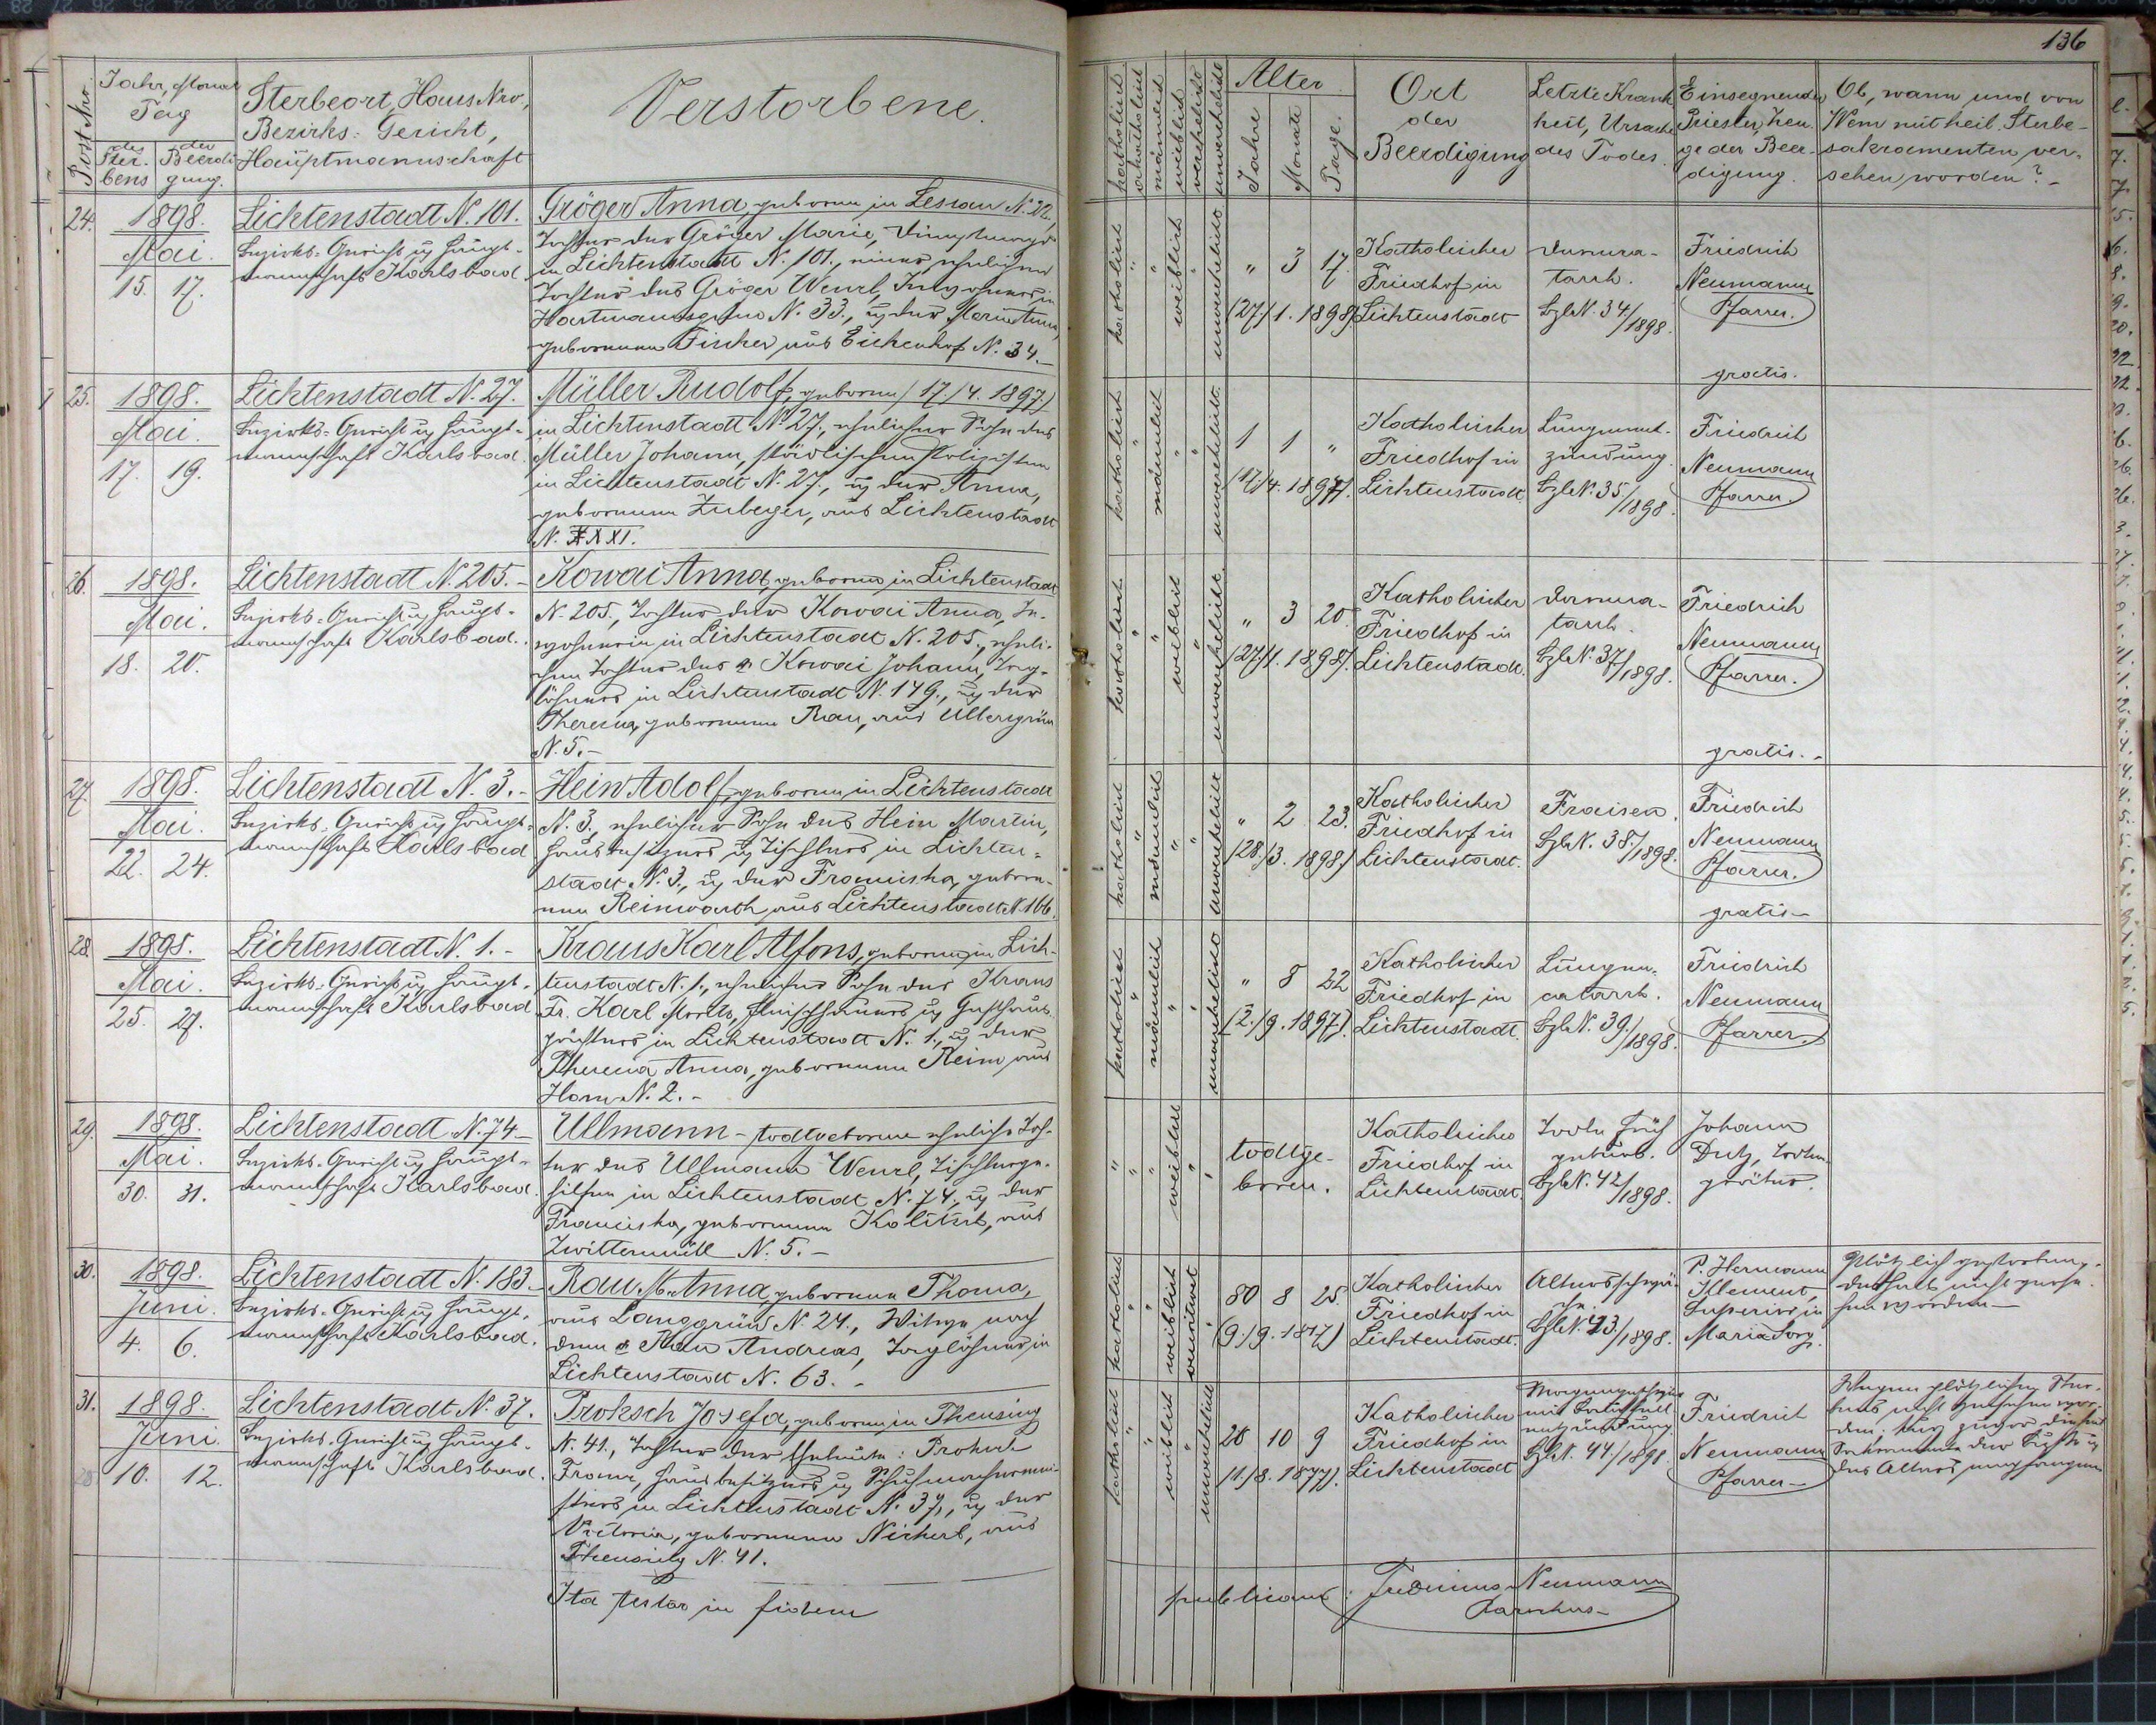 136
Post Nro
Jahr, Monat
Tag
des Sterbens
der Beerdigung.
Sterbeort, Haus Nro,
Bezirks-Gericht,
Hauptmannschaft
Verstorbene.
katholisch
akatholisch
männlich
weiblich
verehelicht
unverehelicht
Alter
Jahre
Monate
Tage.
Ort
der
Beerdigung
Letzte Krank
heit, Ursache
des Todes.
Einsegnender
Priester, Zeu
ge der Beer-
digung.
Ob, wann und von
Wem mit heil. Sterbe-
sakramenten ver-
sehen worden?-
24.
1898.
Mai.
15. 17.
Lichtenstadt N. 101.
Bezirks-Gericht u Haupt-
mannschaft Karlsbad
Gröger Anna, geboren in Lessau N. 22,
Tochter der Gröger Marie, Dienstmagd
in Lichtenstadt N. 101., einer ehelichen
Tochter des Gröger Wenzl,
Hartmannsgrün N. 33., u der Maria Anna,
geborenen Fischer aus Eichenhof N. 34.-
katholisch
"
"
weiblich
"
unverehelicht
" 3 17.
(27./1. 1898)
Katholischer
Friedhof in
Lichtenstadt
Darmca-
tarrh.
BzlN. 34/1898.
Friedrich
Neumann
Pfarrer.
gratis.
25.
1898.
Mai.
17. 19.
Lichtenstadt N. 27.
Bezirks-Gericht u Haupt-
mannschaft Karlsbad.
Müller Rudolf, geboren (17./4. 1897.)
in Lichtenstadt N. 27., ehelicher Sohn des
Müller Johann, städtischen Polizisten
in Lichtenstadt N. 27., u der Anna,
geborenen Zuberger, aus Lichtenstadt
N. XXXI.
katholisch
"
männlich
"
"
unverehelicht.
1 1 "
(17./4. 1897).
Katholischer
Friedhof in
Lichtenstadt.
Lungenent-
zündung.
BzlN. 35/1898.
Friedrich
Neumann
Pfarrer.
26.
1898.
Mai.
18. 20.
Lichtenstadt N. 205.-
Bezirks-Gericht u Haupt-
mannschaft Karlsbad.
Kowai Anna, geboren in Lichtenstadt
N. 205., Tochter der Kowai Anna, In-
wohnerin in Lichtenstadt N. 205., eheli-
chen Tochter des Kowai Johann, Tag-
löhners in Lichtenstadt N. 179., u der
Theresia, geborenen Rau, aus Ullersgrün
N. 5.-
katholisch
"
"
weiblich
"
unverehelicht.
" 3 20.
(27./1. 1898).
Katholischer
Friedhof in
Lichtenstadt.
Darmca-
tarrh.
BzlN. 37/1898.
Friedrich
Neumann
Pfarrer.
gratis.-
27.
1898.
Mai.
22. 24.
Lichtenstadt N. 3.-
Bezirks-Gericht u Haupt-
mannschaft Karlsbad
Hein Adolf, geboren in Lichtenstadt
N. 3., ehelicher Sohn des Hein Martin,
Hausbesitzers u Tischlers in Lichten-
stadt N. 3., u der Franziska, gebore-
nen Reinwarth aus Lichtenstadt N. 166.
katholisch
"
männlich
"
"
unverehelicht
" 2 23.
(28./3. 1898.)
Katholischer
Friedhof in
Lichtenstadt.
Fraisen.
BzlN. 38./1898.
Friedrich
Neumann
Pfarrer.
gratis-
28.
1898.
Mai.
25. 27.
Lichtenstadt N. 1.-
Bezirks-Gericht u Haupt-
mannschaft Karlsbad
Kraus Karl Alfons, geboren in Lich-
tenstadt N. 1., ehelicher Sohn des Kraus
Fr. Karl Moritz, Fleischhauers u Gasthaus-
pächters in Lichtenstadt N. 1., u der
Theresia Anna, geborenen Reim aus
Horn N. 2.-
katholisch
"
männlich
"
"
unverehelicht
" 8 22
(2./9. 1897).
Katholischer
Friedhof in
Lichtenstadt.
Lungen-
catarrh.
BzlN. 39./1898.
Friedrich
Neumann
Pfarrer.
29.
1898.
Mai.
30. 31.
Lichtenstadt N. 74-
Bezirks-Gericht u Haupt-
mannschaft Karlsbad.
Ullmann - todtgeborene eheliche Toch-
ter des Ullmann Wenzl, Tischlerge-
hilfen in Lichtenstadt N. 74., u der
Franziska, geborenen Kolitsch, aus
Zwittermühl N. 5.-
"
"
"
weiblich
"
"
todtge-
boren.
Katholischer
Friedhof in
Lichtenstadt.
Todte Früh
geburt.
BzlN. 42/1898.
Johann
Dutz, Todten-
gräber.
30.
1898.
Juni.
4. 6.
Lichtenstadt N. 183.-
Bezirks-Gericht u Haupt-
mannschaft Karlsbad.
Rau M. Anna, geborene Thoma,
aus Langgrün N. 24., Witwe nach
dem Rau Andreas, Taglöhner in
Lichtenstadt N. 63.-
katholisch
"
"
weiblich
verwitwet
80 8 25.
(9./9. 1817)
Katholischer
Friedhof in
Lichtenstadt.
Altersschwä-
che.
BzlN. 43./1898.
P. Hermann
Klement,
Superior in
Maria Sorg.
Plötzlich gestorben,
deshalb nicht verse-
hen worden-
31.
1898.
Juni.
10. 12.
Lichtenstadt N. 37.
Bezirks-Gericht u Haupt-
mannschaft Karlsbad.
Proksch Josefa, geboren in Theusing
N. 41., Tochter der Eheleute: Proksch
Franz, Hausbesitzers u Schuhmachermei-
sters in Lichtenstadt N. 37., u der
Victoria, geborenen Nickerl, aus
Theusing N. 41.
katholisch
"
"
weiblich
"
unverehelicht
20 10 9
(1./8. 1877).
Katholischer
Friedhof in
Lichtenstadt
Magengeschwür
mit Bauchfell
entzündung.
BzlN. 44./1898.
Friedrich
Neumann
Pfarrer-
Wegen plötzlichen Ster-
bens nicht versehen wor-
den.
des Altars empfangen
Ita testor in fidem
publicam: Fridericus Neumann
Parochus-